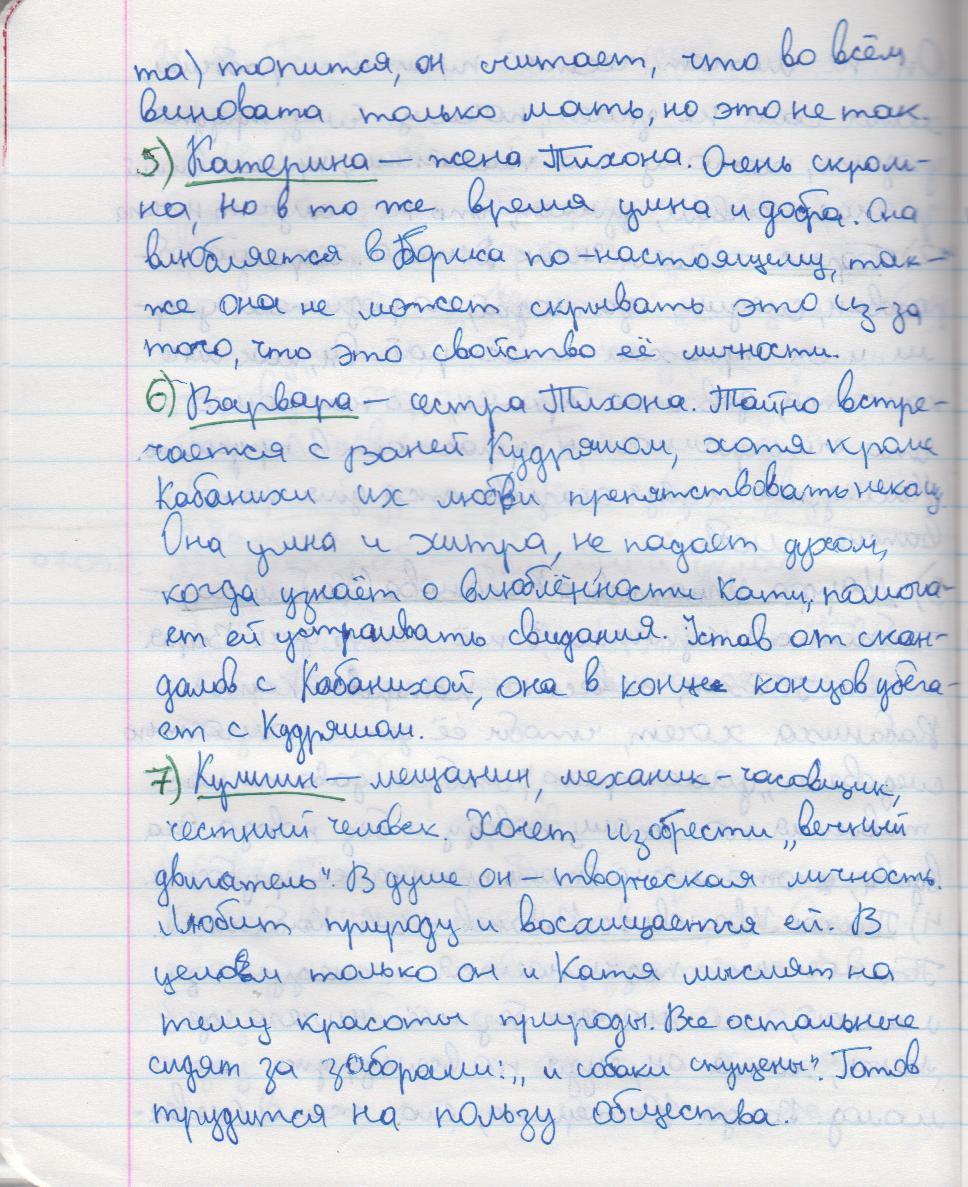 та) топится, он считает, что во всём
виновата только мать, но это не так.
5) Катерина — жена Тихона. Очень скром-
на, но в то же время умна и добра. Она
влюбляется в Бориса по-настоящему, так-
же она не может скрывать это из-за
того, что это свойство её личности.
6) Варвара — сестра Тихона. Тайно встре-
чается с Ваней Кудряшом, хотя кроме
Кабанихи их любви препятствовать некому
Она умна и хитра, не падает духом,
когда узнаёт о влюблённости Кати, помога-
ет ей устраивать свидания. Устав от скан-
далов с Кабанихой, она в конце концов убега-
ет с Кудряшом.
7) Кулигин — мещанин, механик-часовщик,
честный человек. Хочет изобрести „вечный
двигатель". В душе он — творческая личность.
Любит природу и восхищается ей. В
целом только он и Катя мыслят на
тему красоты природы. Все остальные
сидят за заборами: „и собаки спущены". Готов
трудится на пользу общества.